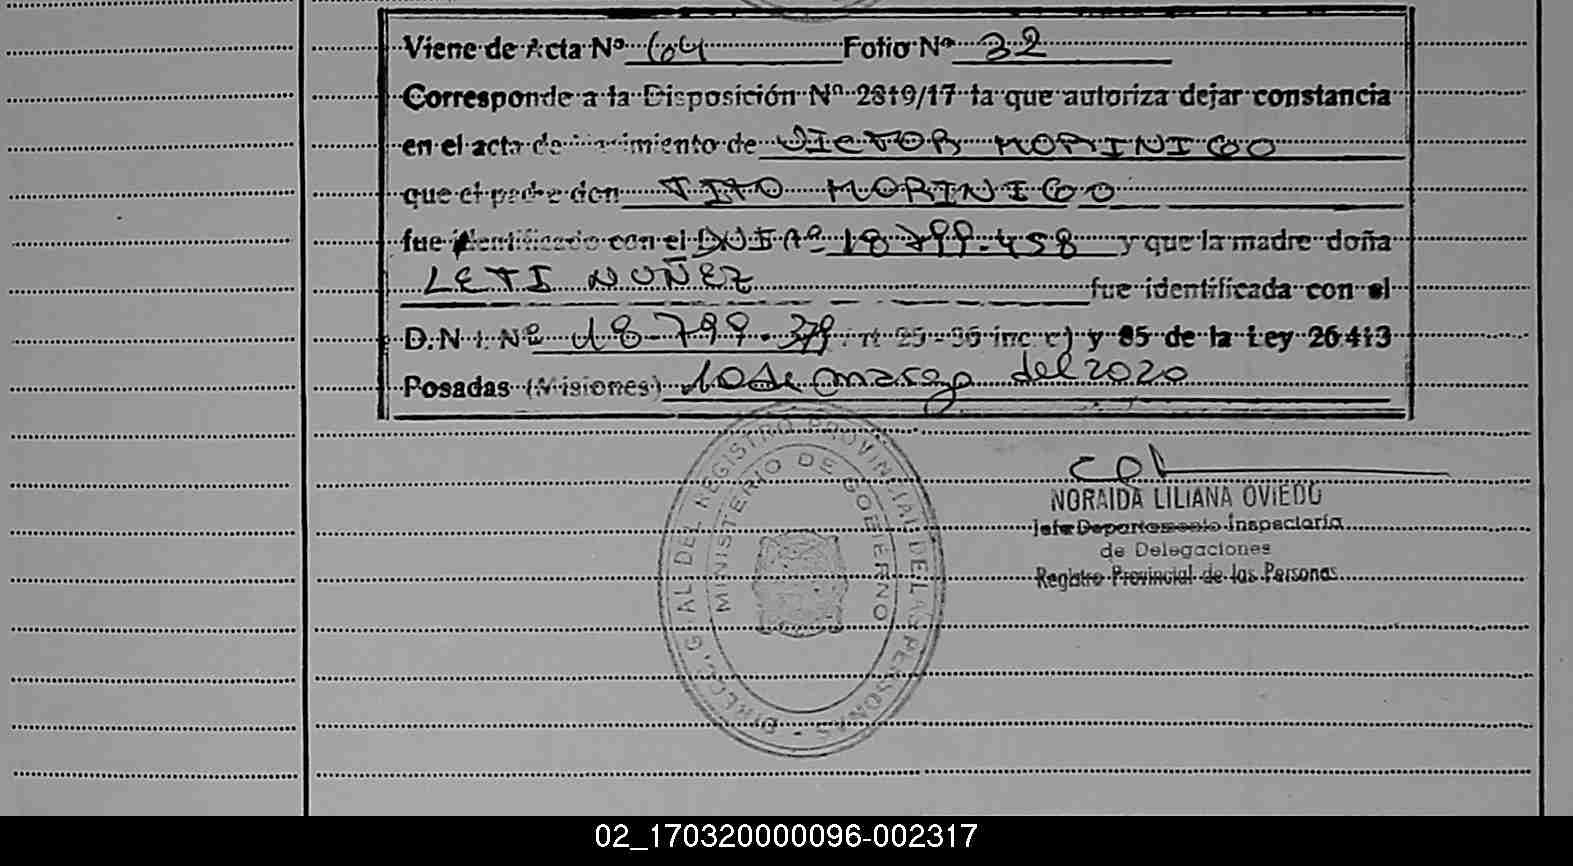 Viene de Acta Nº 64 Folio Nº 32
Corresponde a la Disposición Nº 2819/17 la que autoriza dejar constancia
en el acta de nacimiento de VICTOR MORINIGO
que el padre don TITO MORINIGO
fue identificado con el DNI Nº 18.799.458 y que la madre doña
LETI NUÑEZ fue identificada con el
D.N.I. Nº 18.799.379 25-36 inc c) y 85 de la Ley 26413
Posadas (Misiones) 10 de marzo del 2020
NORAIDA LILIANA OVIEDO
Jefe Departamento Inspectoría
de Delegaciones
Registro Provincial de las Personas
DIRECC. GRAL. DEL REGISTRO PROVINCIAL DE LAS PERSONAS
MINISTERIO DE GOBIERNO
02_170320000096-002317